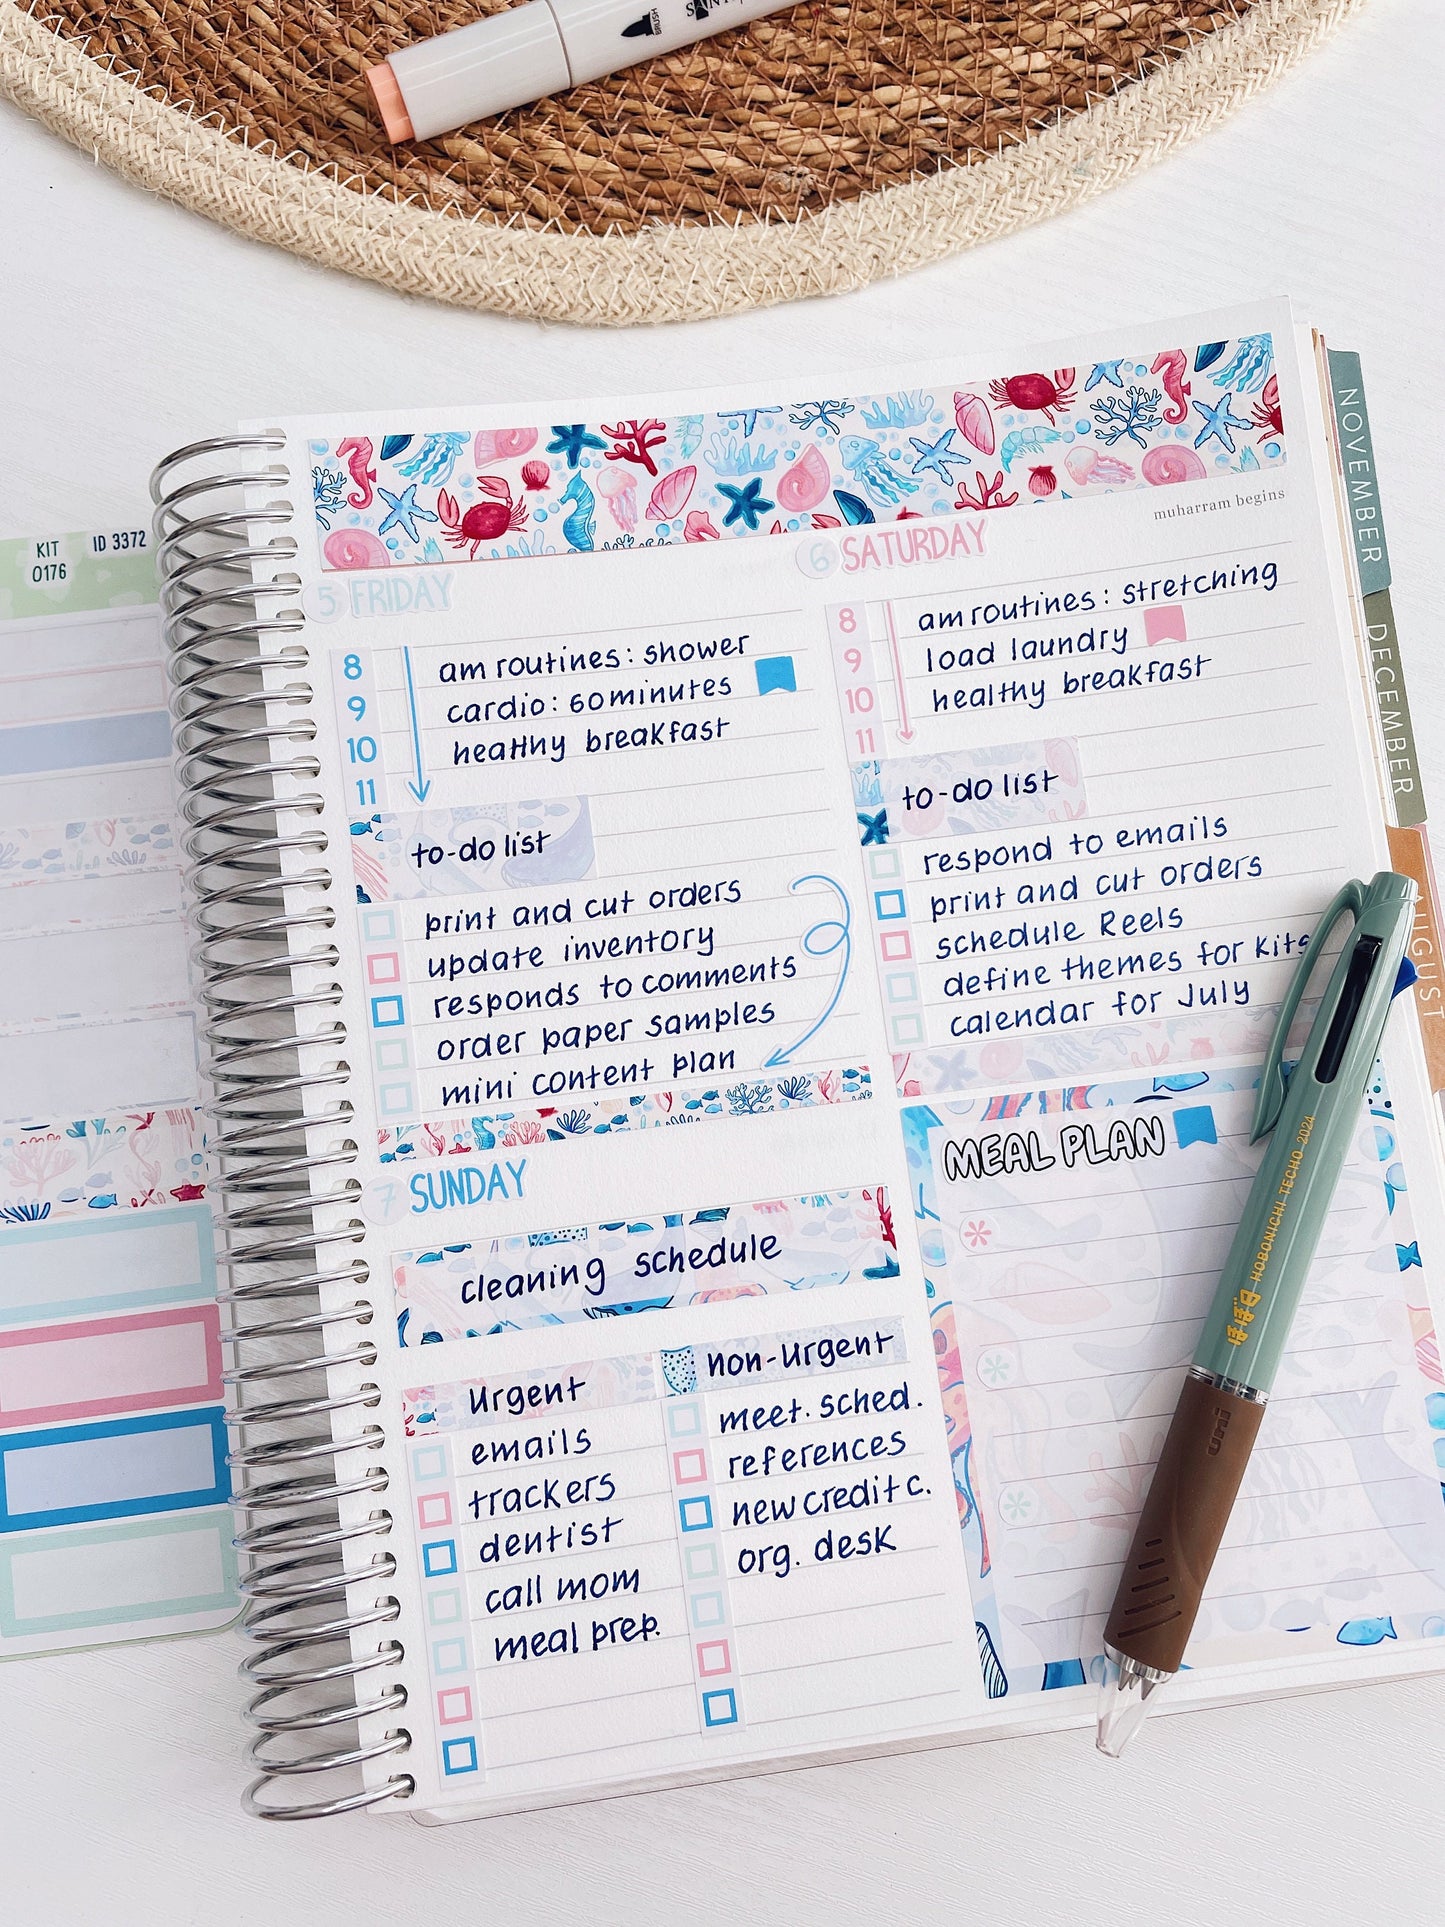 BRUSH
KIT
0176
ID 3372
muharram begins
5 FRIDAY
8
9
10
11
am routines: shower
cardio: 60 minutes
healthy breakfast
to-do list
print and cut orders
update inventory
responds to comments
order paper samples
mini content plan
6 SATURDAY
8
9
10
11
am routines: stretching
load laundry
healthy breakfast
to-do list
respond to emails
print and cut orders
schedule Reels
define themes for kits
calendar for July
7 SUNDAY
cleaning schedule
urgent
emails
trackers
dentist
call mom
meal prep.
non-urgent
meet. sched.
references
new credit c.
org. desk
MEAL PLAN
NOVEMBER
DECEMBER
AUGUST
HOBONICHI TECHO 2024
uni